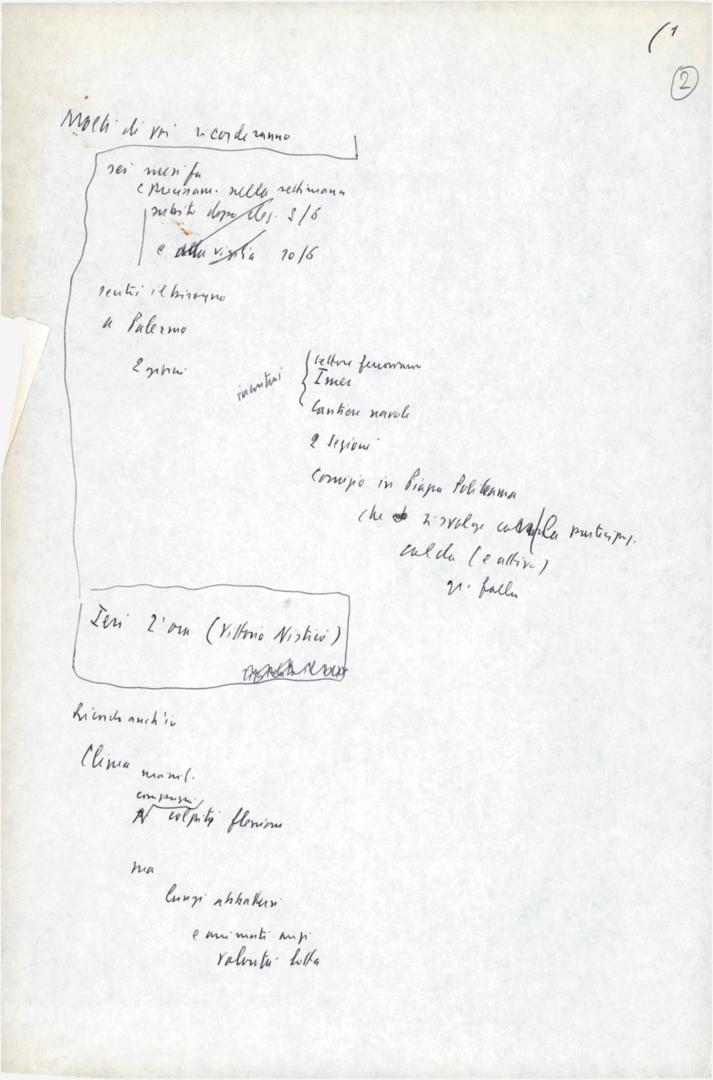 (1
2
Molti di voi ricorderanno
sei mesi fa
(precisam. nella settimana
subito dopo elez. 3/6
e della vigilia 10/6
sentii il bisogno
a Palermo
2 giorni
incontri
settore ferroviario
Imes
Cantiere navale
2 Sezioni
Comizio in Piazza Politeama
che si svolge con la particip.
calda (e attiva)
gr. folla
Ieri L'ora (Vittorio Nisticò)
Ricordo anch'io
Clima manif.
compagni
colpiti flessione
ma
lungi abbattersi
e animati anzi
volontà lotta